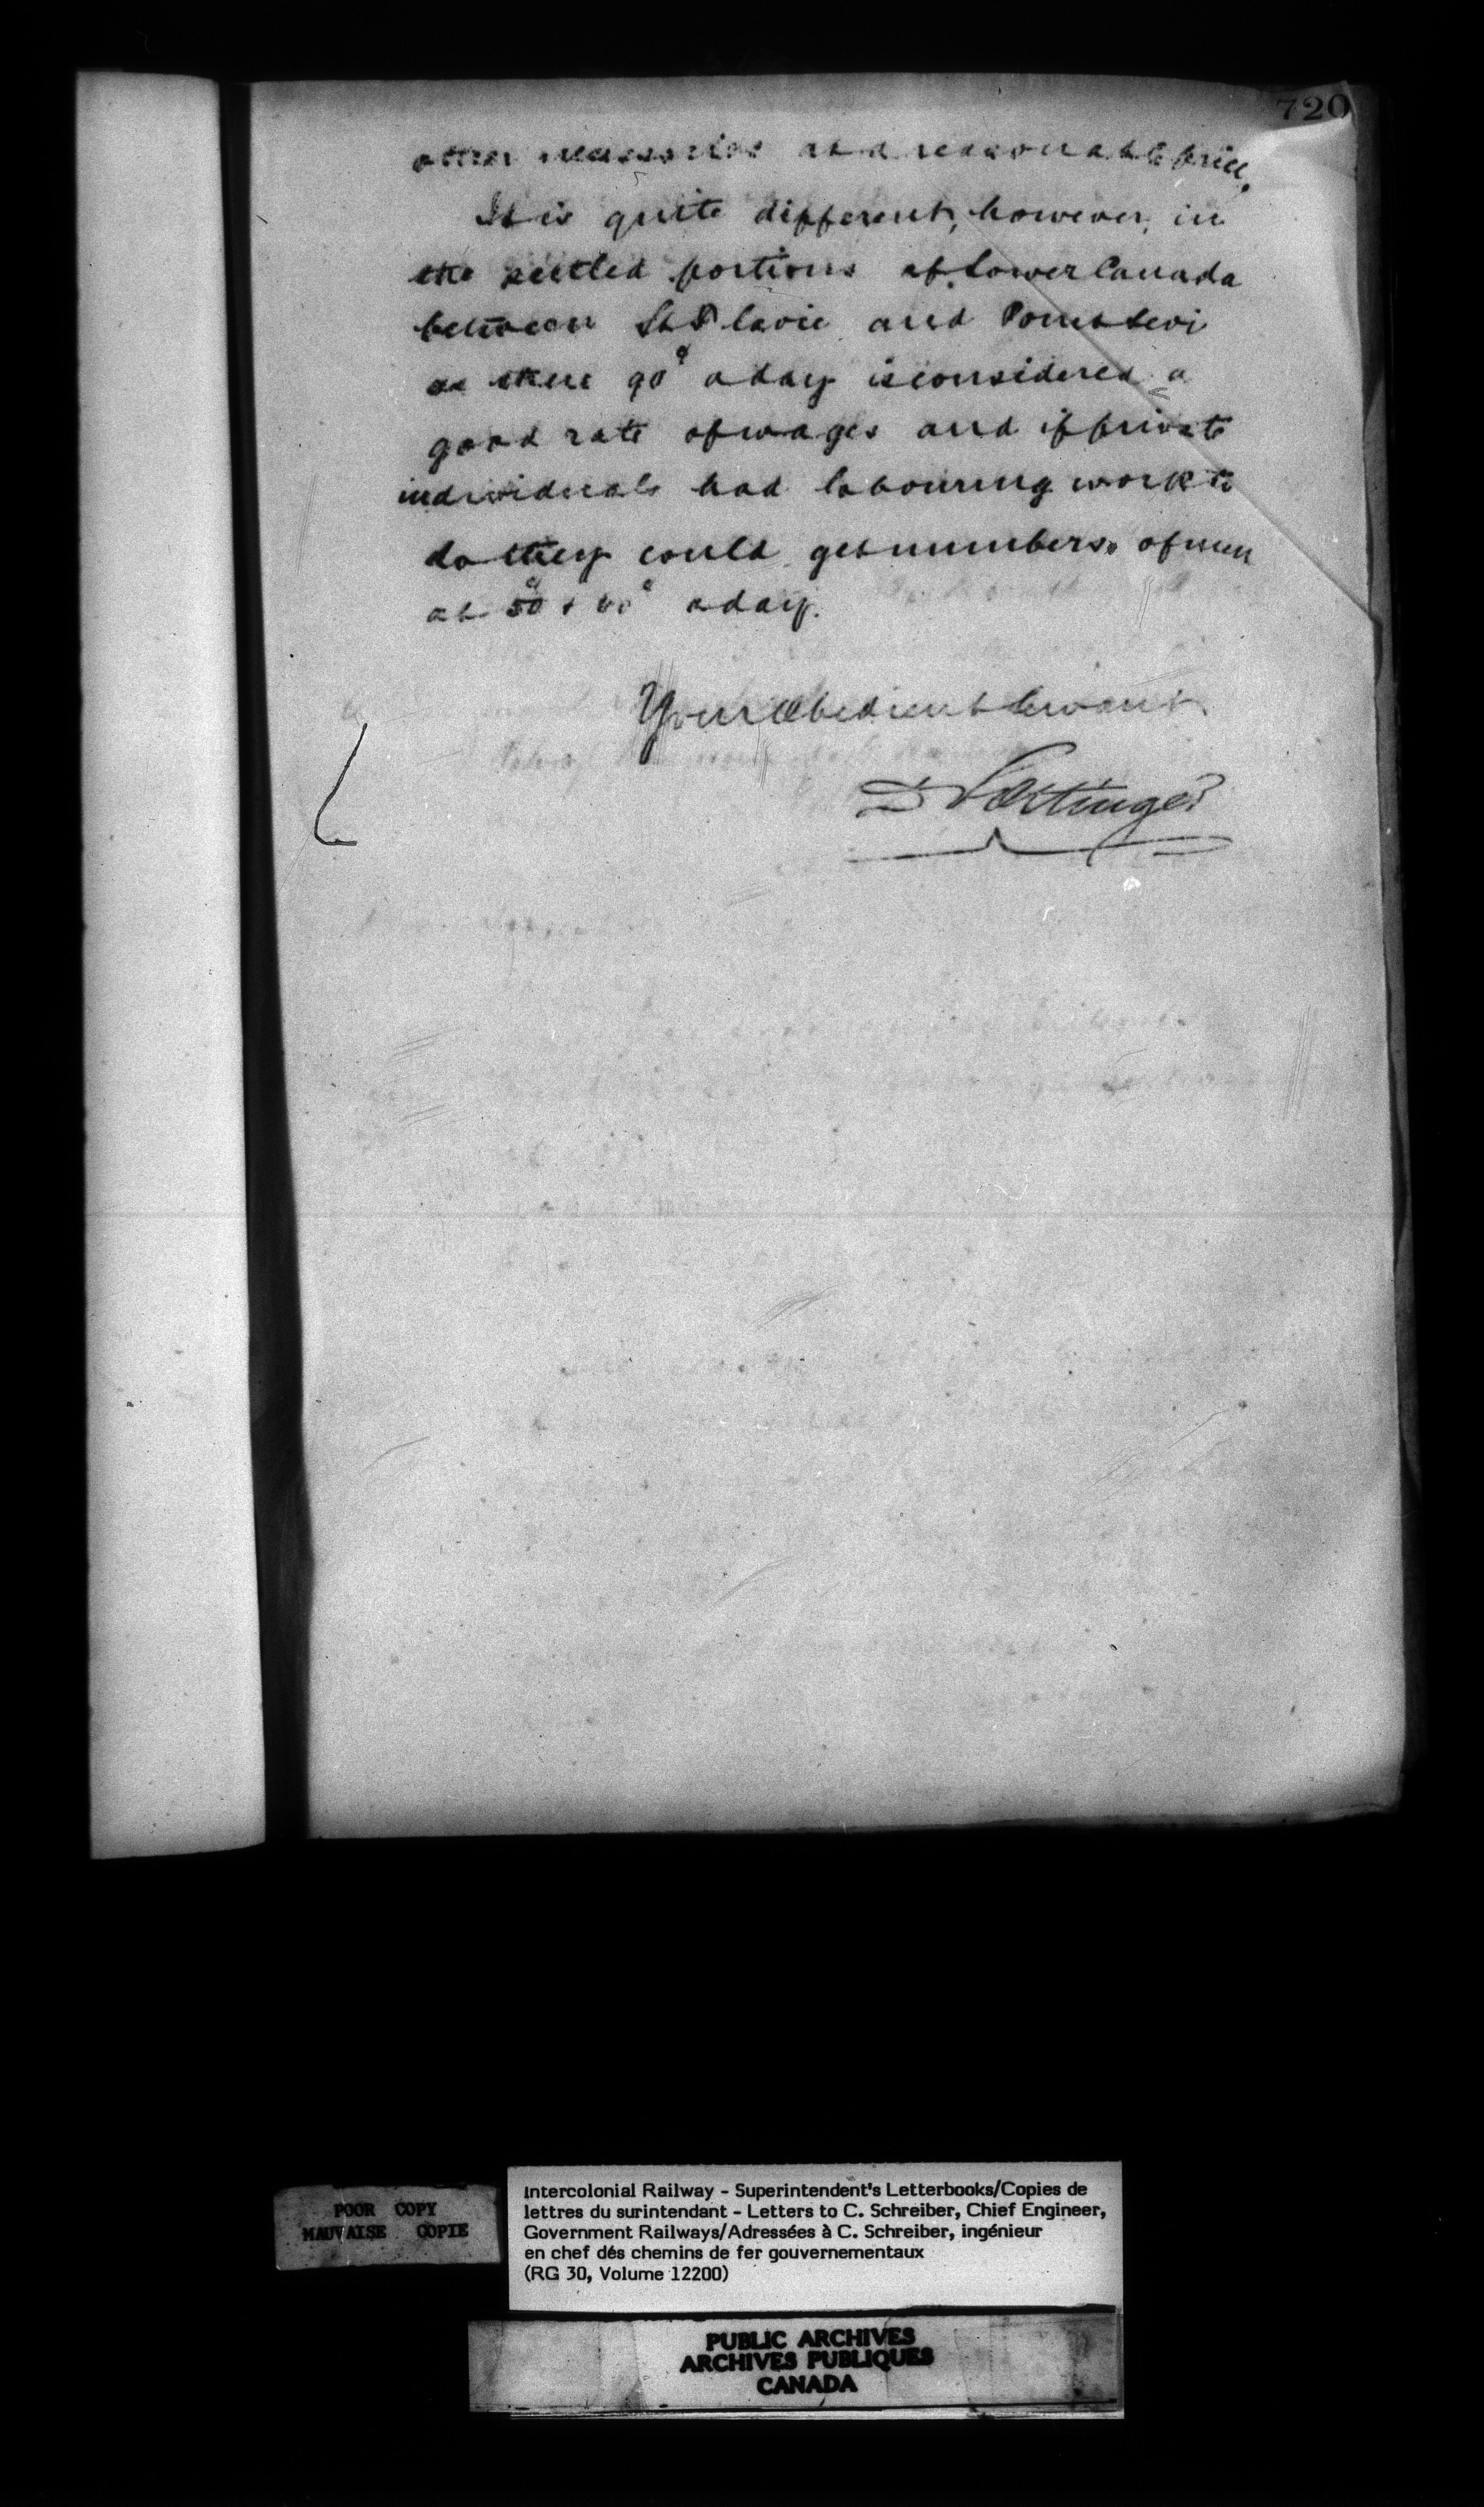 720
other necessaries at a reasonable price.
It is quite different, however, in
the settled portions of Lower Canada
between St Flavie and Point Levi
as there 90c a day is considered a
good rate of wages and if private
individuals had labouring work to
do they could get numbers of men
at 50c & 60c a day.
Your Obedient Servant
D Pottinger
POOR COPY
MAUVAISE COPIE
Intercolonial Railway - Superintendent's Letterbooks/Copies de
lettres du surintendant - Letters to C. Schreiber, Chief Engineer,
Government Railways/Adressées à C. Schreiber, ingénieur
en chef dés chemins de fer gouvernementaux
(RG 30, Volume 12200)
PUBLIC ARCHIVES
ARCHIVES PUBLIQUES
CANADA